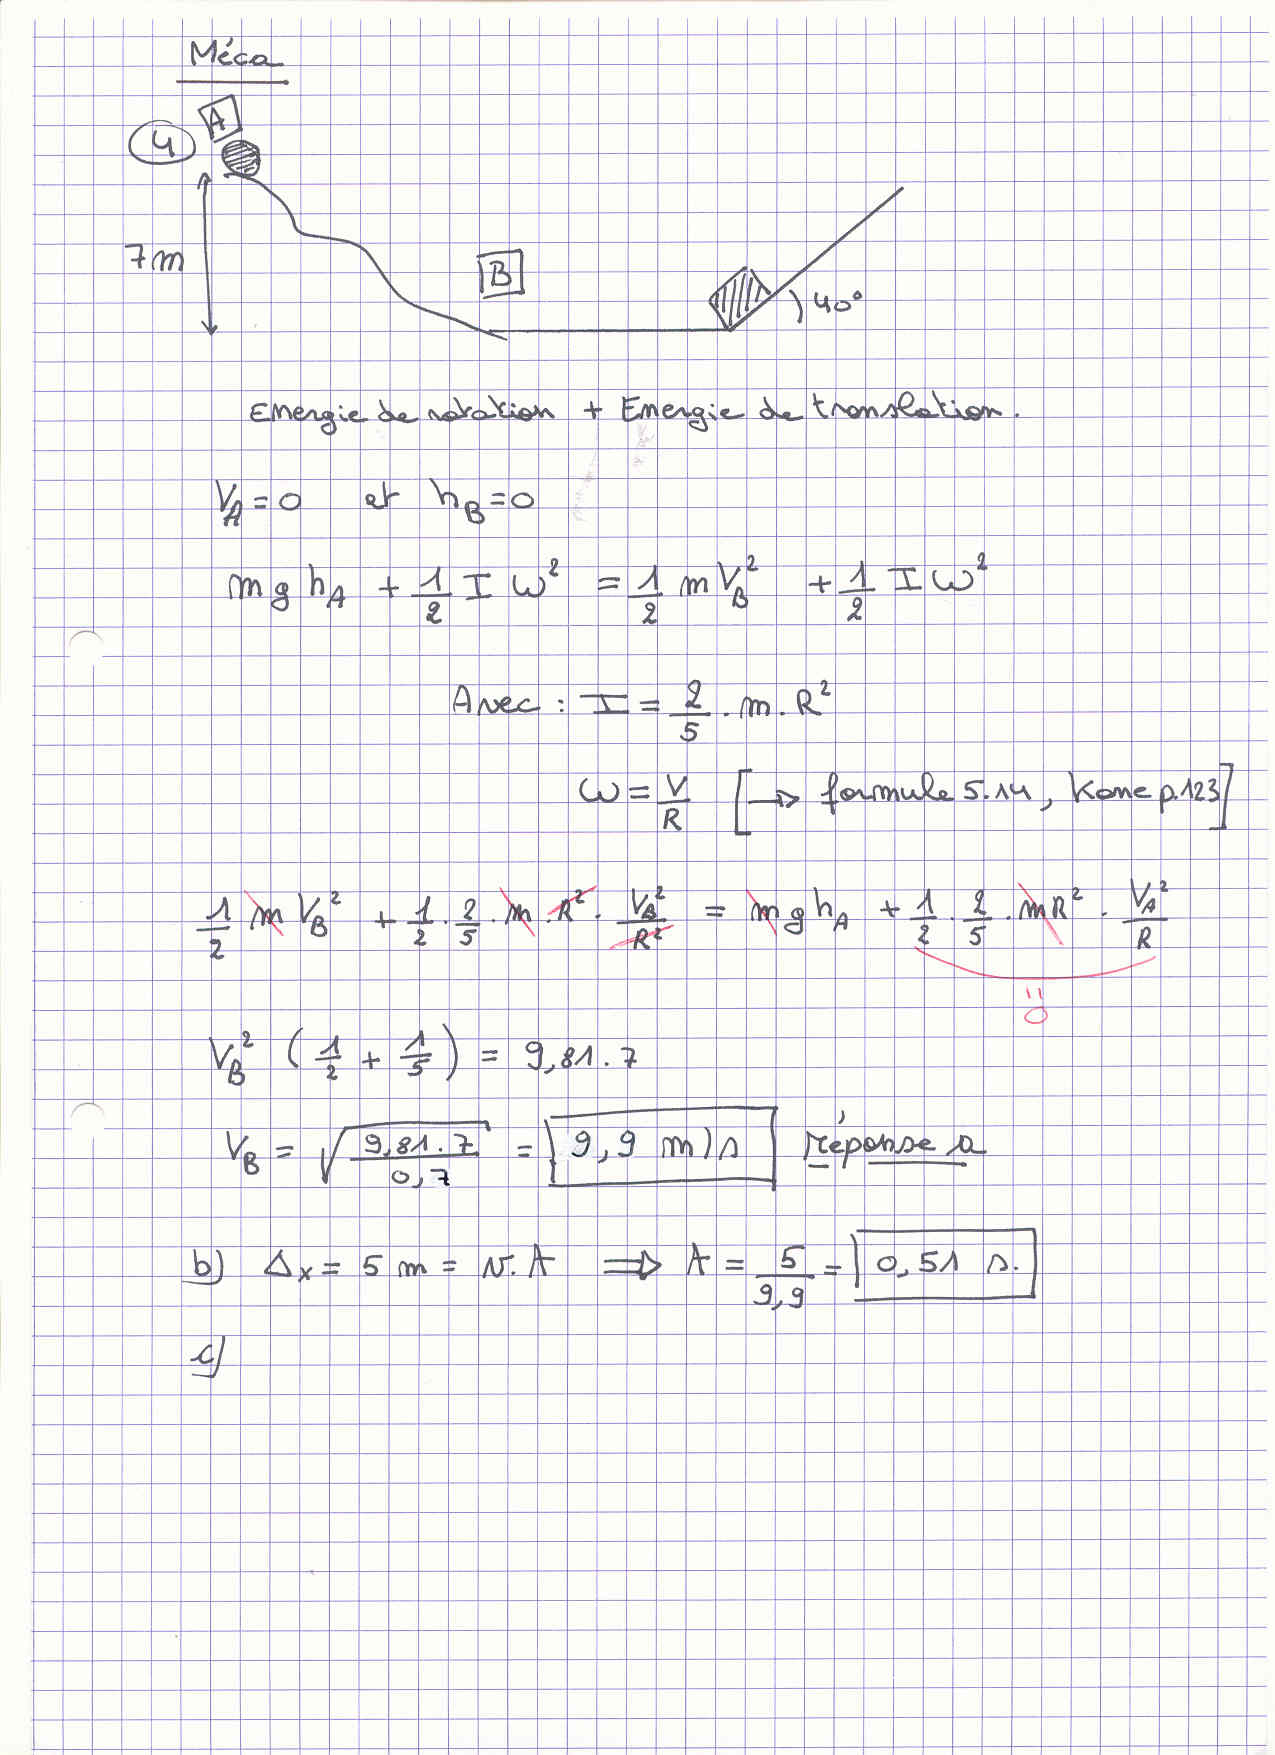 Méca
4
A
7m
B
40°
Energie de rotation + Energie de translation.
V_A = 0 et h_B = 0
m g h_A + 1/2 I ω² = 1/2 m V_B² + 1/2 I ω²
Avec : I = 2/5 . m . R²
ω = V/R [→ formule 5.14, Kane p.123]
1/2 m V_B² + 1/2 . 2/5 . m . R² . V_B²/R² = m g h_A + 1/2 . 2/5 . m R² . V_A²/R
= 0
V_B² (1/2 + 1/5) = 9,81 . 7
V_B = √(9,81 . 7 / 0,7) = 9,9 m/s réponse a
b) Δx = 5 m = v . t ⇒ t = 5/9,9 = 0,51 s.
c)